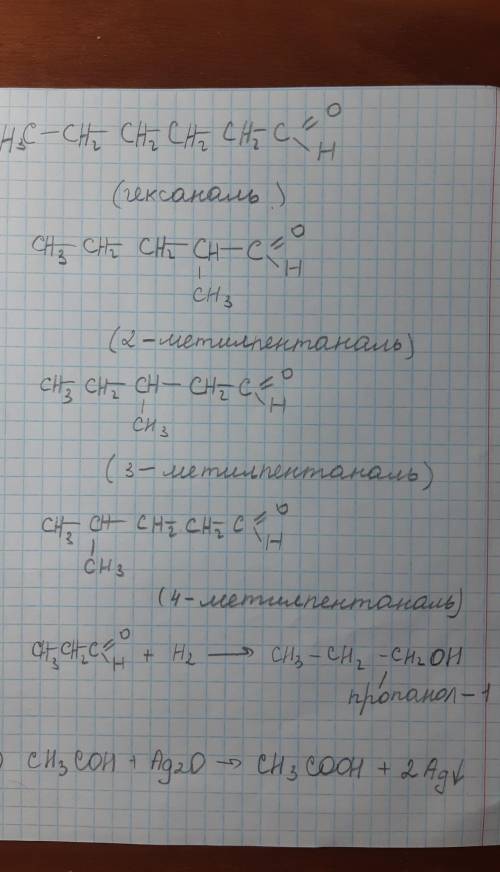 H₃C–CH₂–CH₂–CH₂–CH₂–C=O
H
(гексаналь)
CH₃–CH₂–CH₂–CH–C=O
H
CH₃
(2-метилпентаналь)
CH₃–CH₂–CH–CH₂–C=O
H
CH₃
(3-метилпентаналь)
CH₃–CH–CH₂–CH₂–C=O
H
CH₃
(4-метилпентаналь)
CH₃CH₂C=O
H + H₂ → CH₃–CH₂–CH₂OH
пропанол-1
) CH₃COH + Ag₂O → CH₃COOH + 2Ag↓